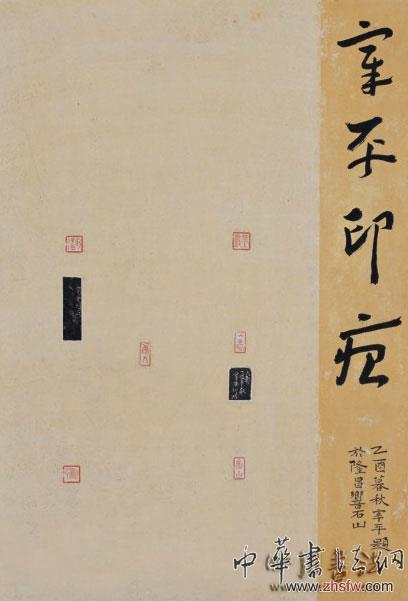 宰平印痕
乙酉暮秋宰平題
於隆昌響石山
中華書法網
www.zhsfw.com